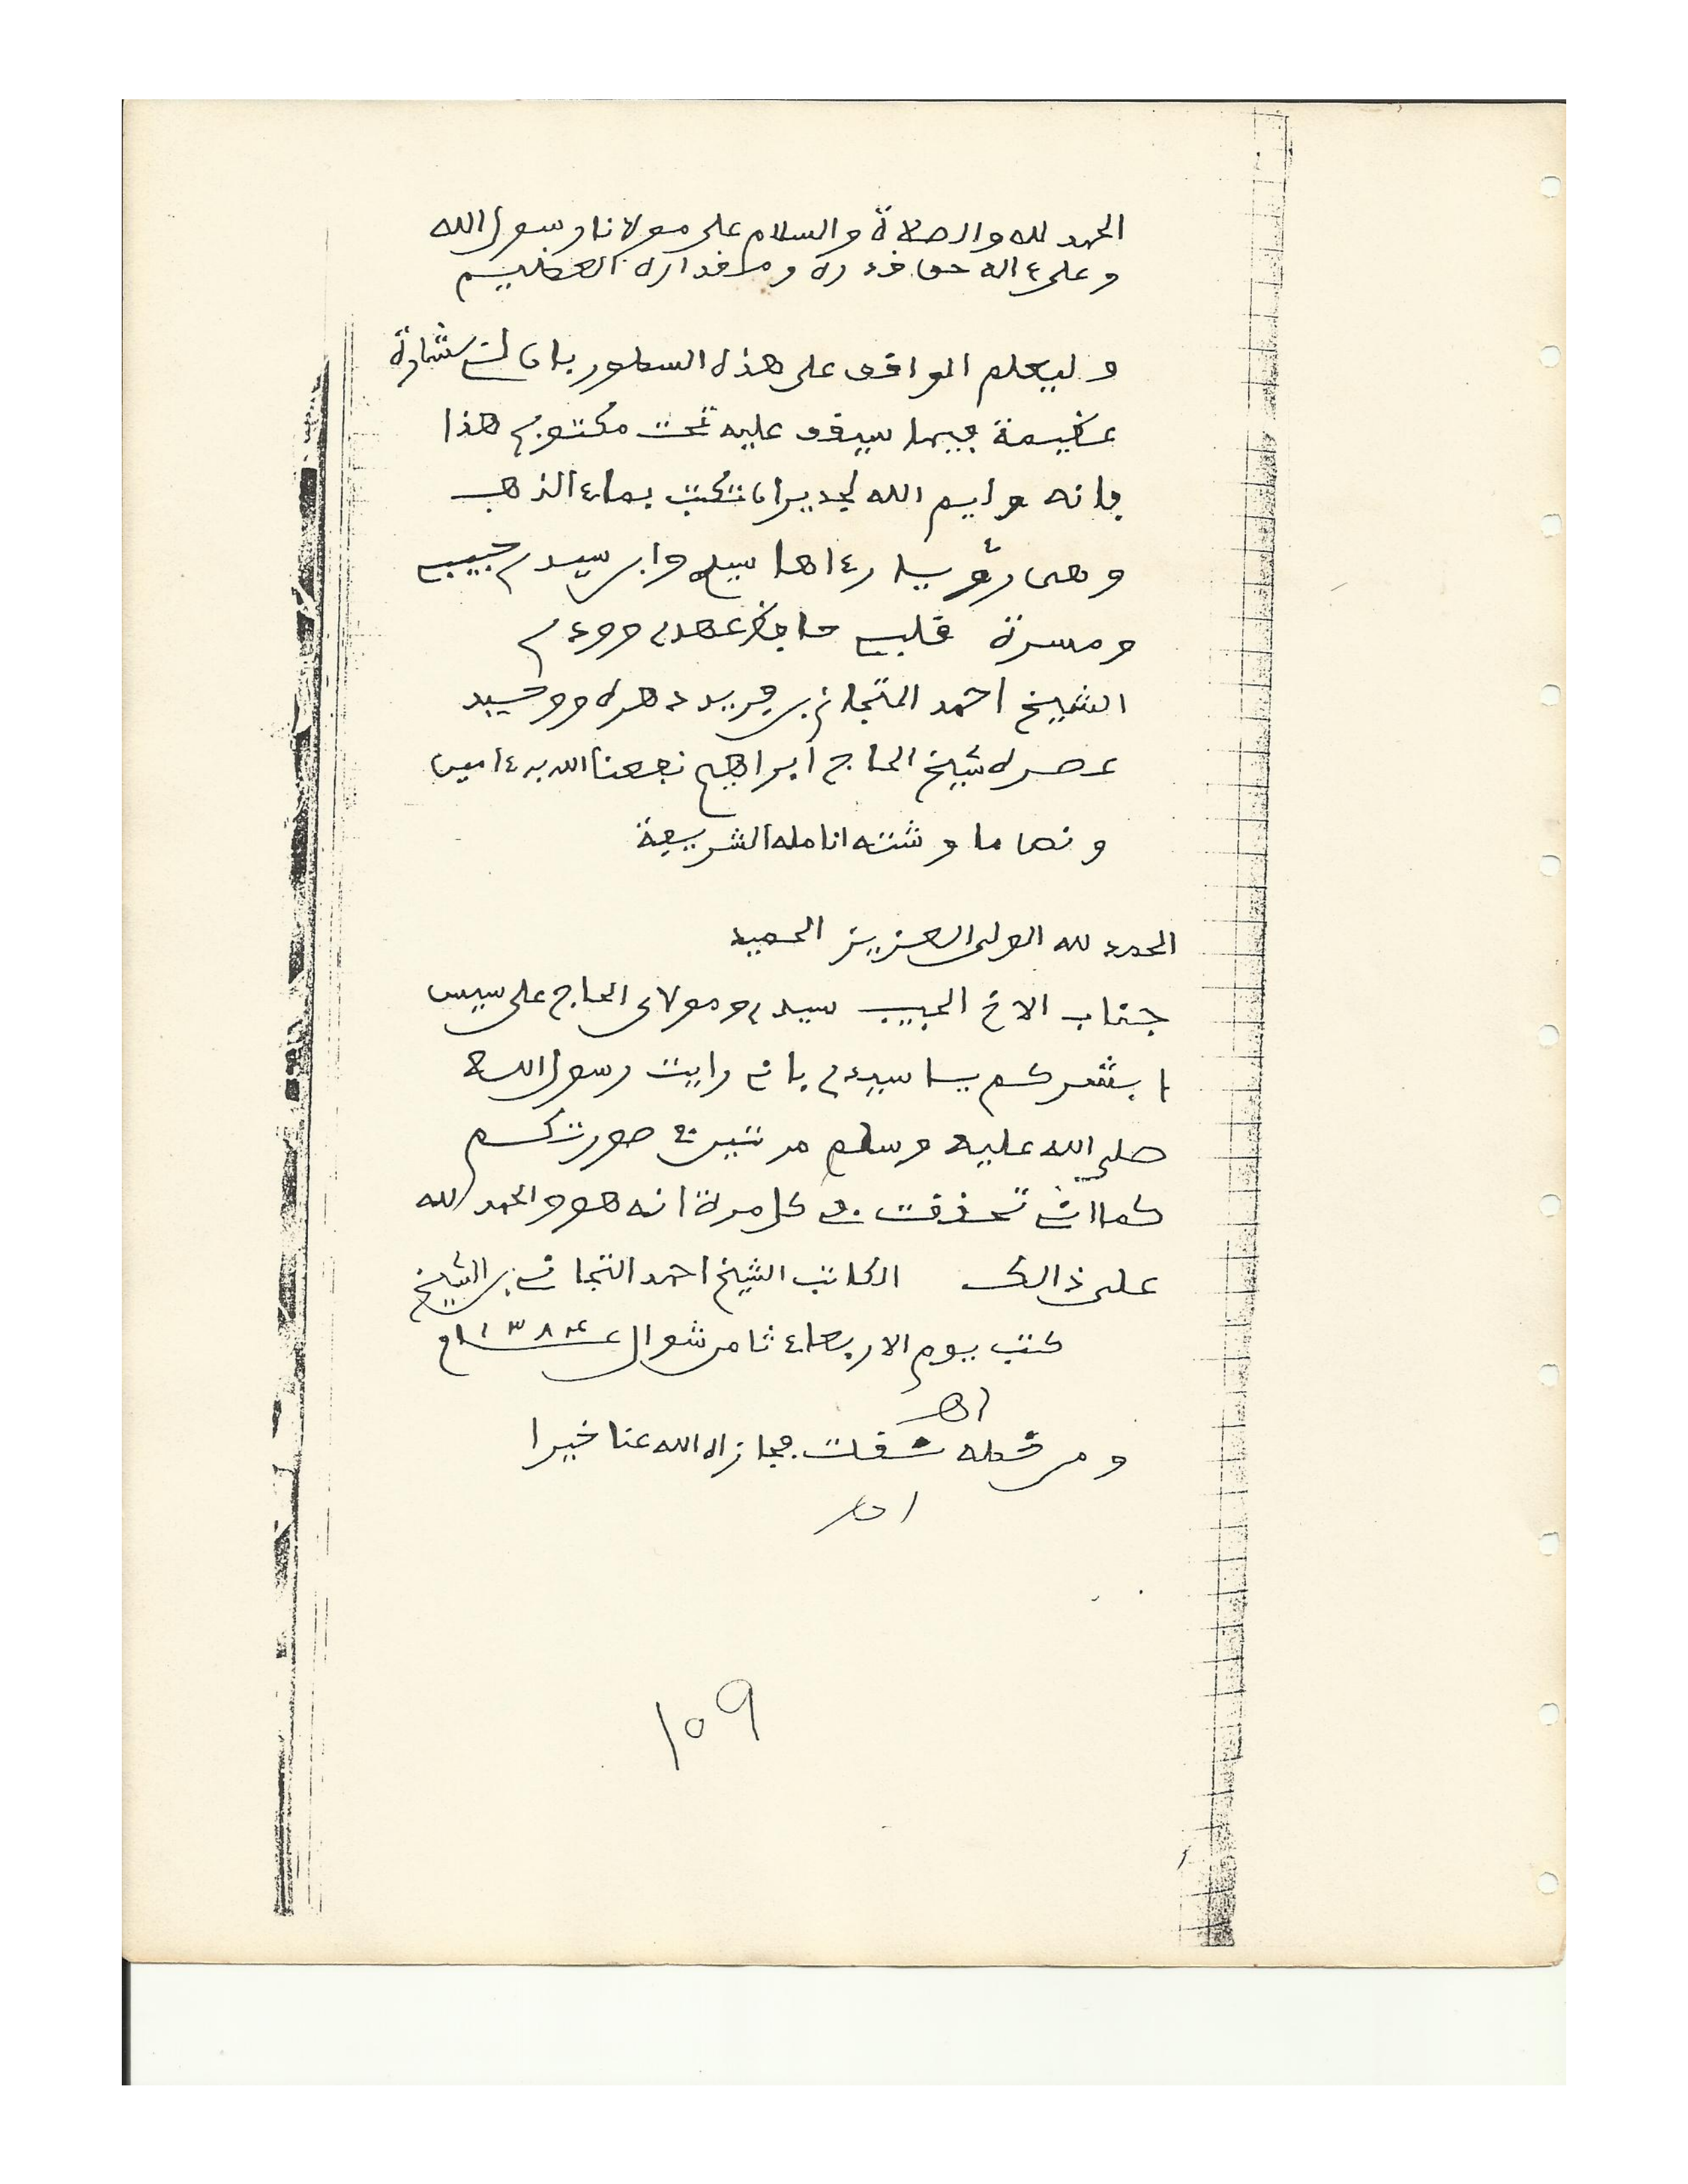 الحمد لله والصلاة والسلام على مولانا رسول الله
وعلى ءاله حق قدره ومقداره العظيم
وليعلم الواقف على هذه السطور بان لى بشارة
عظيمة فيما سيقف عليه تحت مكتوبى هذا
فإنه وايم الله لجدير ان تكتب بماء الذهب
وهى رؤيا رءاها سيدى وابن سيدى حبيبى
ومسرة قلبى حافظ عهدى وودى
الشيخ احمد التجانى بن فريد دهره ووحيد
عصره شيخ الحاج ابراهيم نفعنا الله به ءامين
ونصها ما وشته انامله الشريفة
الحمد لله الولى العزيز الحميد
جناب الاخ الحبيب سيدى ومولاى الحاج على سيس
ابشركم يا سيدى بانى رايت رسول الله
صلى الله عليه وسلم مرتين فى صورتكم
كما انى تحققت فى كل مرة انه هو والحمد لله
على ذالك الكاتب الشيخ احمد التجانى بن الشيخ
كتب يوم الاربعاء ثامن شوال عـــ١٣٨٤ـــام
اهـ
ومن خطه نقلت فجازاه الله عنا خيرا
اهـ
١٥٩